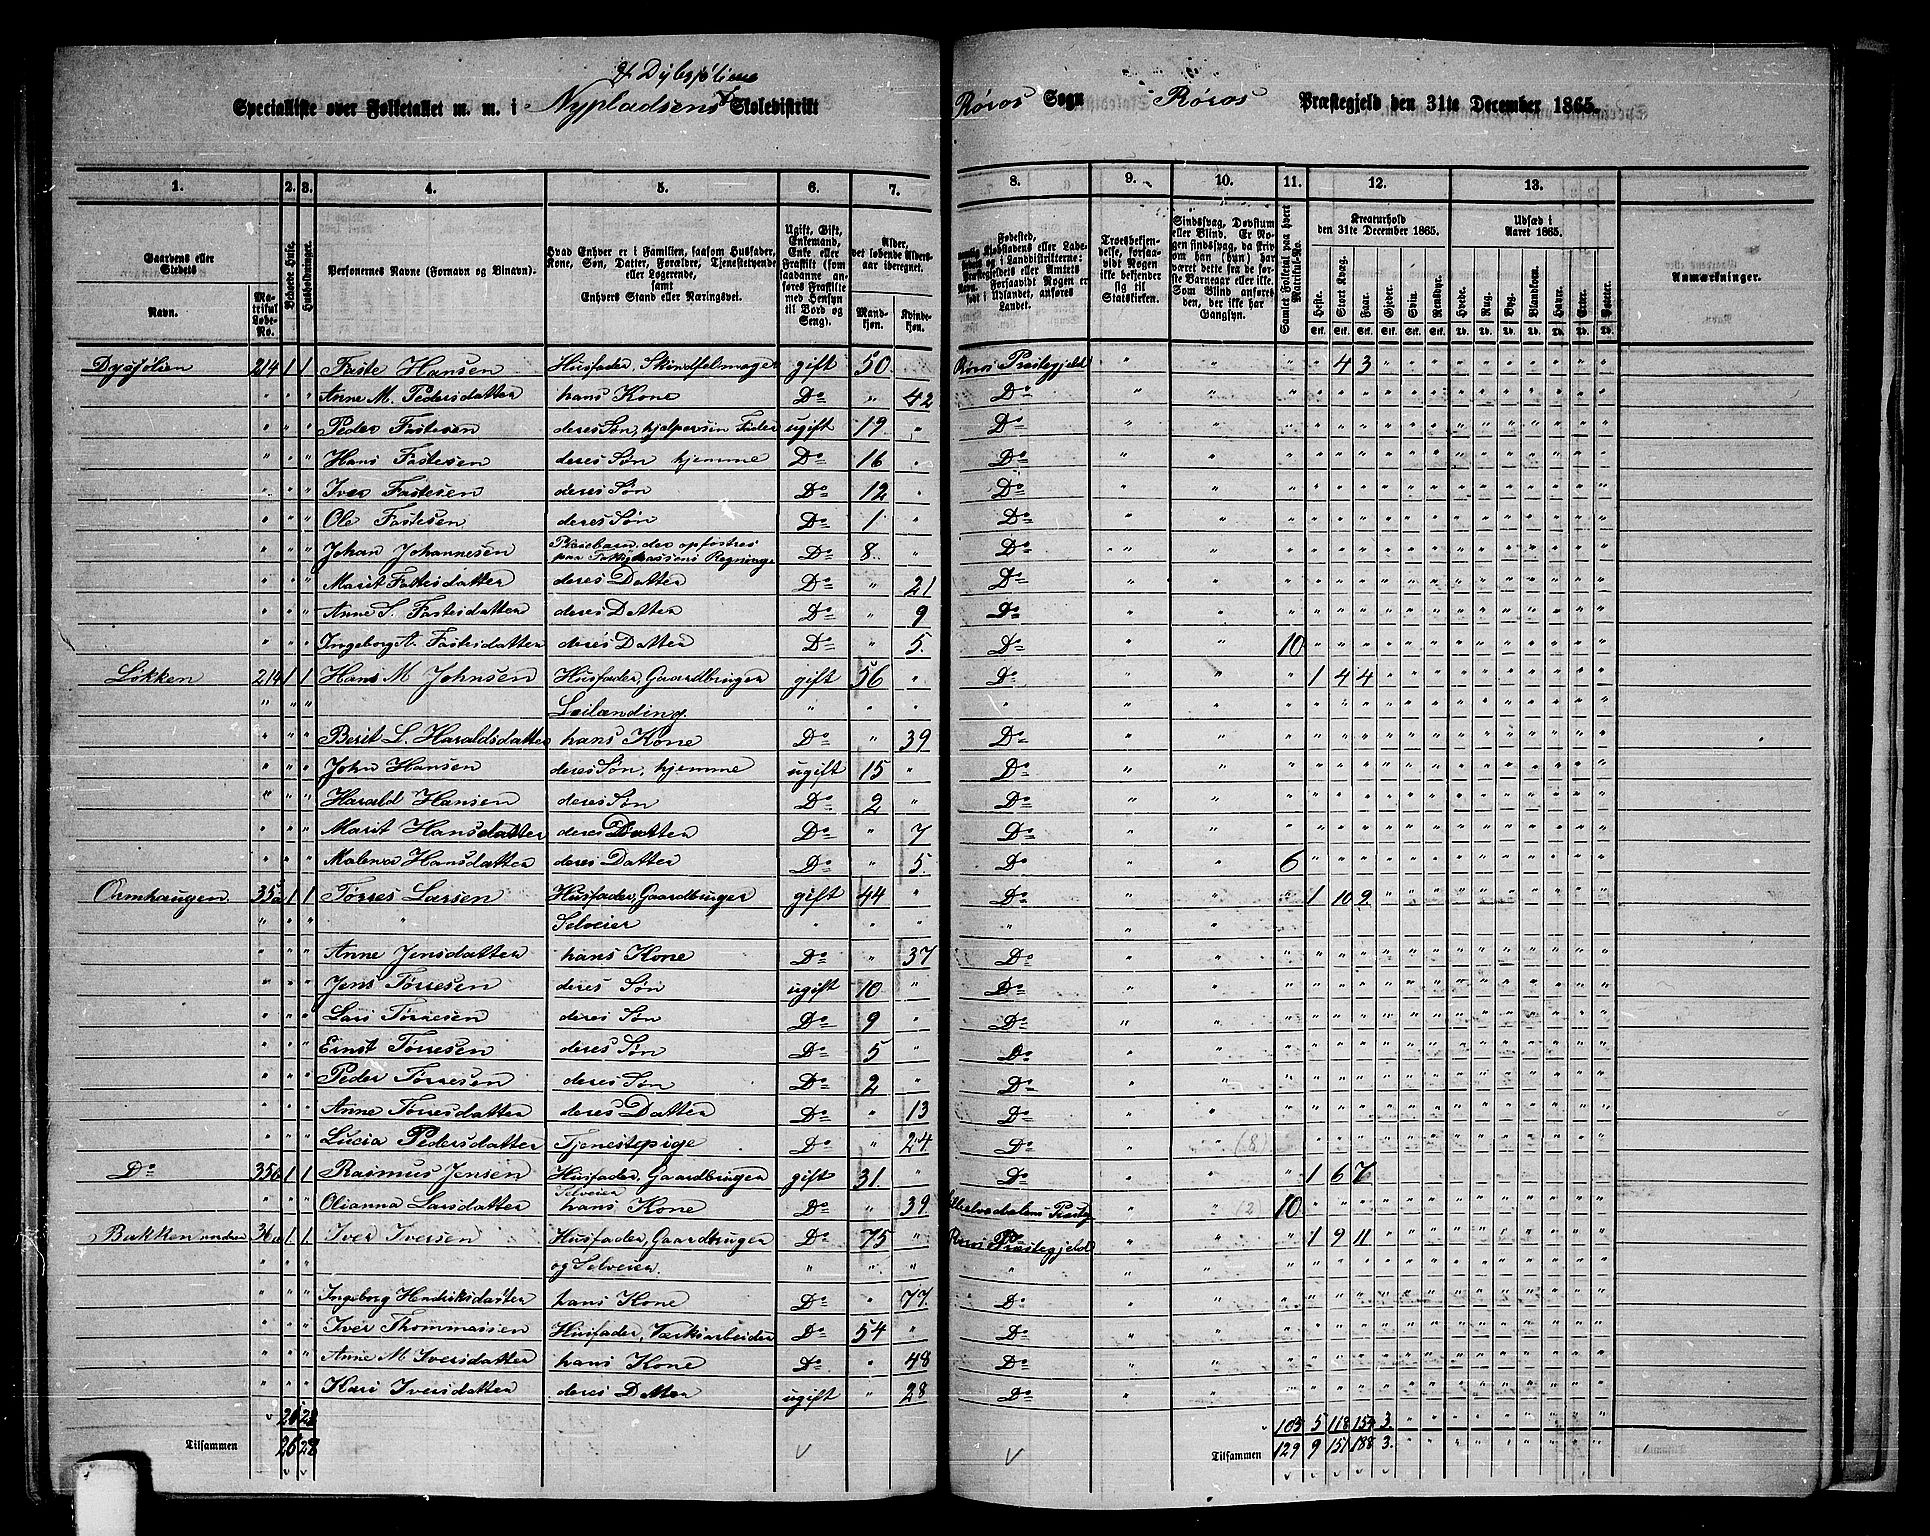 & Dybsjøliens
Specialliste over Folketallet m. m. i Nypladsens Skoledistrikt Røros Sogn Røros Præstegjeld den 31te December 1865.
1. 2. 3. 4. 5. 6. 7. 8. 9. 10. 11. 12. 13.
Gaardens eller Stedets
Navn.
Matrikul Løbe-No.
Beboede Huse.
Husholdninger.
Personernes Navne (Fornavn og Tilnavn).
Hvad Enhver er i Familien, saasom Husfader, Kone, Søn, Datter, Forældre, Tjenestetyende eller Logerende, samt Enhvers Stand eller Næringsvei.
Ugift, Gift, Enkemand, Enke eller Fraskilt (som saadanne anføres Fraskilte med Hensyn til Bord og Seng).
Alder, det løbende Aldersaar iberegnet.
Mandkjøn. Kvindekjøn.
Fødested,
Troesbekjendelse, forsaavidt Nogen ikke bekjender sig til Statskirken.
Sindssvag, Døvstum eller Blind. Er Nogen sindssvag, da hvorvidt han (hun) har været dette fra de første Barneaar eller ikke. Som Blind anføres den, der ikke har Gangsyn.
Samlet Folketal paa hvert Matrikul-No.
Kreaturhold den 31te December 1865.
Heste. Stort Kvæg. Faar. Gjeder. Svin. Rensdyr.
Udsæd i Aaret 1865.
Hvede. Rug. Byg. Blandkorn. Havre. Erter. Poteter.
Anmærkninger.
Dybsjølien 214 1 1 Faste Hansen Husfader, Skindfelmager gift 50 Røros Præstegjeld 4 3
Anne M. Pedersdatter hans Kone Do 42 Do
Peder Fastesen deres Søn, hjelper sin Fader ugift 19 Do
Hans Fastesen deres Søn hjemme Do 16 Do
Iver Fastesen deres Søn Do 12 Do
Ole Fastesen deres Søn Do 1 Do
Johan Johannesen Pleiebarn der opfostres paa Fattigkassens Regning Do 8 Do
Marit Fastesdatter deres Datter Do 21 Do
Anne S. Fastesdatter deres Datter Do 9 Do
Ingeborg A. Fastesdatter deres Datter Do 5 Do 10
Løkken 214 1 1 Hans M Johnsen Husfader, Gaardbruger gift 56 Do 1 4 4
Leilænding
Berit L. Haraldsdatter hans Kone Do 39 Do
John Hansen deres Søn, hjemme ugift 15 Do
Harald Hansen deres Søn Do 2 Do
Marit Hansdatter deres Datter Do 7 Do
Malena Hansdatter deres Datter Do 5 Do 6
Ormhaugen 35a 1 1 Tørres Larsen Husfader, Gaardbruger gift 44 Do 1 10 9
Selveier
Anne Jensdatter hans Kone Do 37 Do
Jens Tørresen deres Søn ugift 10 Do
Lars Tørresen deres Søn Do 9 Do
Ernst Tørresen deres Søn Do 5 Do
Peder Tørresen deres Søn Do 2 Do
Anne Tørresdatter deres Datter Do 13 Do
Lucia Pedersdatter Tjenestepige Do 24 Do (8)
Do 35b 1 1 Rasmus Jensen Husfader, Gaardbruger gift 31 Do 1 6 7
Selveier
Olianna Larsdatter hans Kone Do 39 Lilleelvedalens Præstg (2) 10
Bakken nndre 36a 1 1 Iver Iversen Husfader, Gaardbruger Do 75 Røros Præstegjeld 1 9 11
og Selveier
Ingeborg Hendriksdatter hans Kone Do 77 Do
Iver Thommassen Husfader, Værksarbeider Do 54 Do
Anne M Iversdatter hans Kone Do 48 Do
Kari Iversdatter deres Datter ugift 28 Do
26 28 103 5 118 153 3
Tilsammen 26 28 Tilsammen 129 9 151 188 3